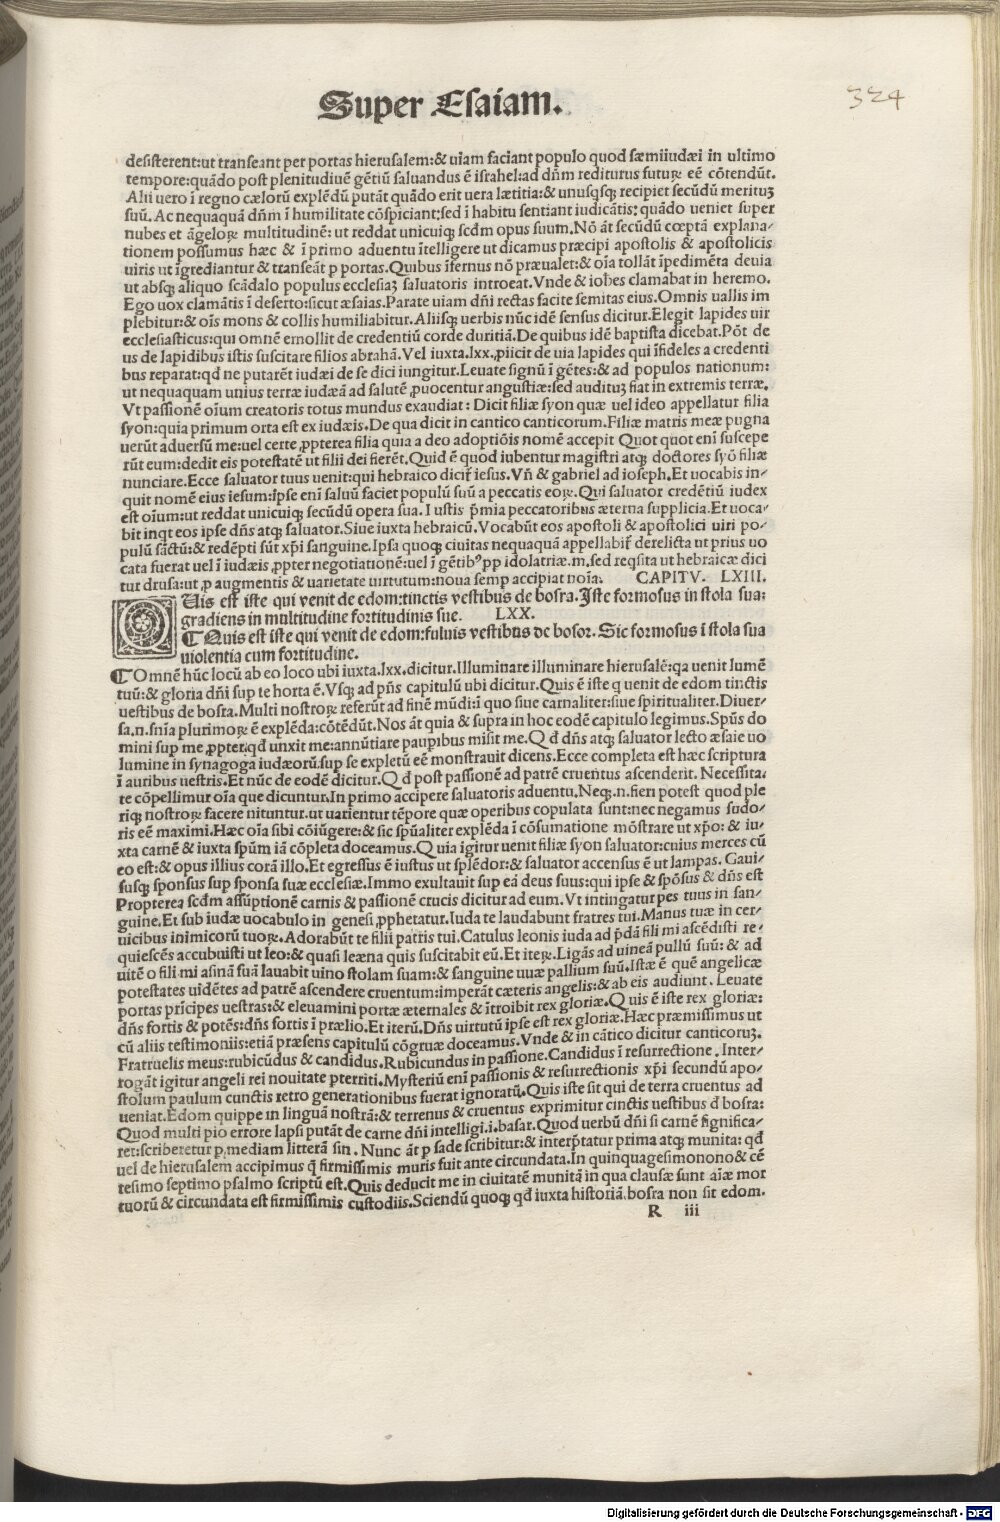 Super Esaiam.
324
desisterent:ut transeant per portas hierusalem:& uiam faciant populo quod sæmiiudæi in ultimo
tempore:quãdo post plenitudiuẽ gẽtiũ saluandus ẽ israhel:ad dñm redituros futuꝝ eẽ cõtendũt.
Alii uero ĩ regno cælorũ explẽdũ putãt quãdo erit uera lætitia:& unusqsqꝫ recipiet secũdũ merituꝫ
suũ. Ac nequaquã dñm ĩ humilitate cõspiciant:sed ĩ habitu sentiant iudicãtis: quãdo ueniet super
nubes et ãgeloꝝ multitudinẽ: ut reddat unicuiqꝫ scdm opus suum. Nõ ãt secũdũ cœptã explana-
tionem possumus hæc & ĩ primo aduentu ĩtelligere ut dicamus præcipi apostolis & apostolicis
uiris ut ĩgrediantur & transeãt p portas. Quibus ĩfernus nõ præualet:& oĩa tollãt ĩpedimẽta deuia
ut absqꝫ aliquo scãdalo populus ecclesiaꝫ saluatoris introeat. Vnde & iohẽs clamabat in heremo.
Ego uox clamãtis ĩ deserto:sicut æsaias. Parate uiam dñi rectas facite semitas eius. Omnis uallis im
plebitur:& oĩs mons & collis humiliabitur. Aliisqꝫ uerbis nũc idẽ sensus dicitur. Elegit lapides uir
ecclesiasticus:qui omnẽ emollit de credentiũ corde duritiã. De quibus idẽ baptista dicebat. Põt de
us de lapidibus istis suscitare filios abrahã. Vel iuxta.lxx.,piicit de uia lapides qui ĩfideles a credenti
bus reparat:qđ ne putarẽt iudæi de se dici iungitur. Leuate signũ ĩ gẽtes:& ad populos nationum:
ut nequaquam unius terræ iudææã ad salutẽ ꝓuocentur angustiæ:sed audituꝫ fiat in extremis terræ.
Vt passionẽ oĩum creatoris totus mundus exaudiat: Dicit filiæ syon quæ uel ideo appellatur filia
syon:quia primum orta est ex iudæis. De qua dicit in cantico canticorum. Filiæ matris meæ pugna
uerũt aduersũ me:uel certe ꝓpterea filia quia a deo adoptiõis nomẽ accepit Quot quot enĩ suscepe
rũt eum:dedit eis potestatẽ ut filii dei fierẽt. Quid ẽ quod iubentur magistri atqꝫ doctores syõ filiæ
nunciare. Ecce saluator tuus uenit:qui hebraico dicit̃ iesus. Vñ & gabriel ad ioseph. Et uocabis in-
quit nomẽ eius iesum:ipse enĩ saluũ faciet populũ suũ a peccatis eoꝝ. Qui saluator credẽtiũ iudex
est oĩum:ut reddat unicuiqꝫ secũdũ opera sua. I ustis p̃mia peccatoribus æterna supplicia. Et uoca-
bit inqt eos ipse dñs atqꝫ saluator. Siue iuxta hebraicũ. Vocabũt eos apostoli & apostolici uiri po-
pulũ sãctũ:& redẽpti sũt xp̃i sanguine. Ipsa quoqꝫ ciuitas nequaquã appellabit̃ derelicta ut prius uo
cata fuerat uel ĩ iudæis ꝓpter negotiationẽ:uel ĩ gẽtibꝰ pp idolatriæ.m.sed reqsita ut hebraicæ dici
tur drusa:ut ꝓ augmentis & uarietate uirtutum:noua semp accipiat noĩa. CAPITV. LXIII.
QUis est iste qui venit de edom:tinctis vestibus de bosra. Iste formosus in stola sua:
gradiens in multitudine fortitudinis sue. LXX.
¶ Quis est iste qui venit de edom:fuluis vestibus de bosor. Sic formosus ĩ stola sua
uiolentia cum fortitudine.
¶ Omnẽ hũc locũ ab eo loco ubi iuxta.lxx.dicitur. Illuminare illuminare hierusalẽ:qa uenit lumẽ
tuũ:& gloria dñi sup te horta ẽ. Vsqꝫ ad pñs capitulũ ubi dicitur. Quis ẽ iste q uenit de edom tinctis
uestibus de bosra. Multi nostroꝝ referũt ad finẽ mũdi:ĩ quo siue carnaliter:siue spiritualiter. Diuer-
sa.n.sñia plurimoꝝ ẽ explẽda:cõtẽdũt. Nos ãt quia & supra in hoc eodẽ capitulo legimus. Spũs do
mini sup me ꝓpter:qđ unxit me:annũtiare paupibus misit me. Q đ dñs atqꝫ saluator lecto æsaie uo
lumine in synagoga iudæorũ.sup se expletũ eẽ monstrauit dicens. Ecce completa est hæc scriptura
ĩ auribus uestris. Et nũc de eodẽ dicitur. Q đ post passionẽ ad patrẽ cruentus ascenderit. Necessita-
te cõpellimur oĩa que dicuntur. In primo accipere saluatoris aduentu. Neqꝫ.n.fieri potest quod ple
riqꝫ nostroꝝ facere nituntur.ut uarientur tẽpore quæ operibus copulata sunt:nec negamus sudo-
ris eẽ maximi. Hæc oĩa sibi cõiũgere:& sic spũaliter explẽda ĩ cõsumatione mõstrare ut xp̃o: & iu-
xta carnẽ & iuxta spũm iã cõpleta doceamus. Q uia ĩgitur uenit filiæ syon saluator:cuius merces cũ
eo est:& opus illius corã illo. Et egressus ẽ iustus ut splẽdor:& saluator accensus ẽ ut lampas. Gaui-
susqꝫ sponsus sup sponsa suæ ecclesiæ. Immo exultauit sup eã deus suus:qui ipse & spõsus & dñs est
Propterea scdm assũptionẽ carnis & passionẽ crucis dicitur ad eum. Vt intingatur pes tuus in san-
guine. Et sub iudæ uocabulo in genesi ꝓphetatur. Iuda te laudabunt fratres tui. Manus tuæ in cer-
uicibus inimicorũ tuoꝝ. Adorabũt te filii patris tui. Catulus leonis iuda ad p̃dã fili mi ascẽdisti re-
quiescẽs accubuisti ut leo:& quasi leæna quis suscitabit eũ. Et iteꝝ. Ligãs ad uineã pullũ suũ: & ad
uitẽ o fili mi asinã suã lauabit uino stolam suam:& sanguine uuæ pallium suũ. Istæ ẽ quẽ angelicæ
potestates uidẽtes ad patrẽ ascendere cruentum:imperãt cæteris angelis:& ab eis audiunt. Leuate
portas prĩcipes uestras:& eleuamini portæ æternales & ĩtroibit rex gloriæ. Q uis ẽ iste rex gloriæ:
dñs fortis & potẽs:dñs fortis ĩ prælio. Et iterũ. Dñs uirtutũ ipse est rex gloriæ. Hæc præmissimus ut
cũ aliis testimoniis:etiã præsens capitulũ cõgruæ doceamus. Vnde & in cãtico dicitur canticoruꝫ.
Fratruelis meus:rubicũdus & candidus. Rubicundus in passione. Candidus ĩ resurrectione. Inter-
rogãt igitur angeli rei nouitate pterriti. Mysteriũ enĩ passionis & resurrectionis xp̃i secundũ apo-
stolum paulum cunctis retro generationibus fuerat ignoratũ. Quis iste sit qui de terra cruentus ad
ueniat. Edom quippe in linguã nostrã:& terrenus & cruentus exprimitur cinctis uestibus đ bosra:
Quod multi pio errore lapsi putãt de carne dñi intelligi.i.basar. Quod uerbũ dñi si carnẽ significa-
ret:scriberetur p mediam litterã sin. Nunc ãt p sade scribitur:& interp̃tatur prima atqꝫ munita: qđ
uel de hierusalem accipimus q̃ firmissimis muris fuit ante circundata. In quinquagesimonono & cẽ
tesimo septimo psalmo scriptũ est. Quis deducit me in ciuitatẽ munitã in qua clausæ sunt aĩæ mor
tuorũ & circundata est firmissimis custodiis. Sciendũ quoqꝫ qđ iuxta historiã.bosra non sit edom.
R iii
Digitalisierung gefördert durch die Deutsche Forschungsgemeinschaft - DFG